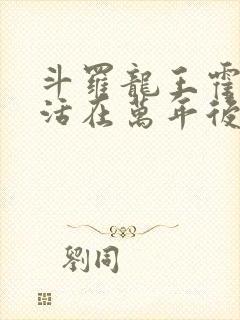 斗羅龍王霍
活在萬年後
劉同